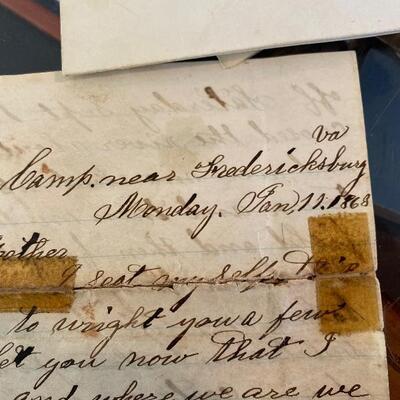 Va
Camp. near Fredericksburg
Monday. Jan, 11. 1863
I seat myself this
to wright you a few
let you now that I
and where we are we